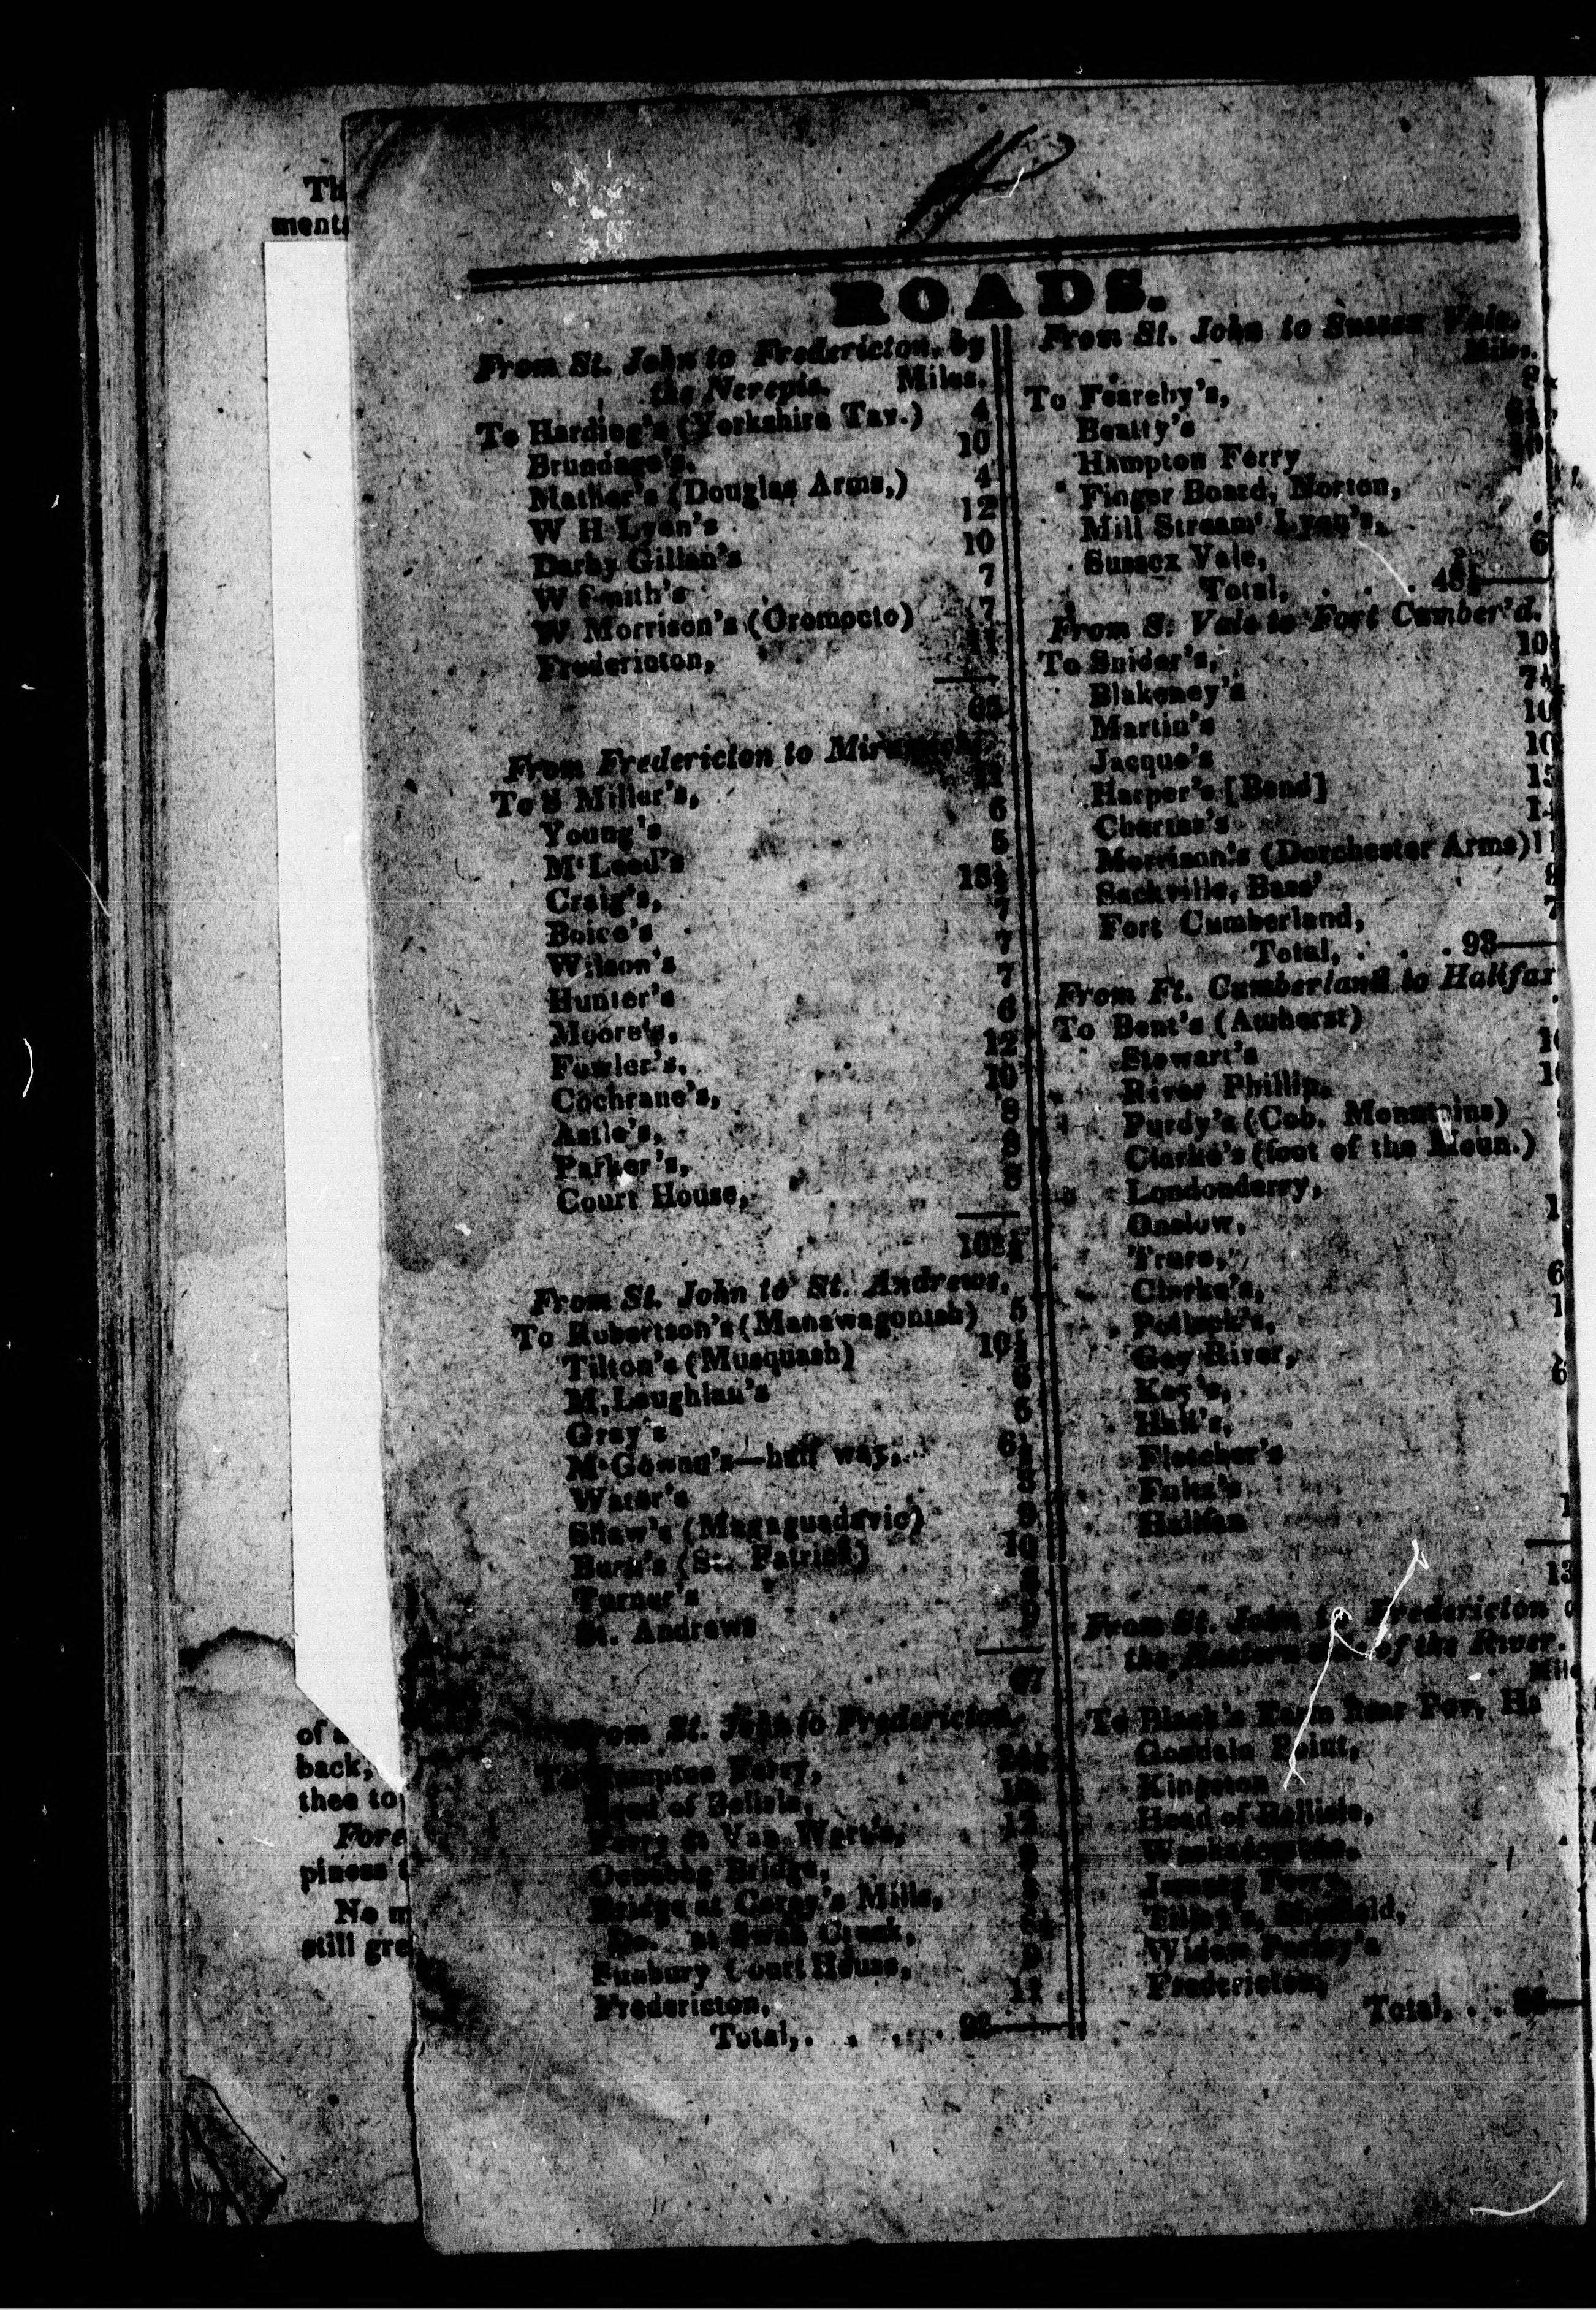 Th
ments
of a
back,
thee to
Fore
piness t
No m
still gre
ROADS.
From St. John to Fredericton, by
the Nerepis. Miles.
To Harding's (Yorkshire Tav.) 4
Brundage's, 10
Mather's (Douglas Arms,) 4
W H Lyon's 12
Darby Gillan's 10
W Smith's 7
W Morrison's (Oromocto) 7
Fredericton, 11
65
From Fredericton to Miramichi.
To S Miller's, 11
Young's 6
M'Leod's 5
Craig's, 13½
Boice's 7
Wilson's 7
Hunter's 7
Moore's, 6
Fowler's, 12
Cochrane's, 10
Astle's, 8
Parker's, 8
Court House, 8
108½
From St. John to St. Andrews,
To Robertson's (Manawagonish) 5
Tilton's (Musquash) 10½
M,Loughlan's 6
Gray's 6
M'Gowan's—half way, 6½
Water's 3
Shaw's (Magaguadavic) 9
(St. Patrick) 10
Turner's
St. Andrews 9
67
From St. John to Fredericton,
To Hampton Ferry, 24½
Head of Belisle,
Ferry at Van Wart's, 12
Bridge,
Bridge at Carey's Mills,
Do. at Swan Creek,
Sunbury Court House, 9
Fredericton, 11
Total, . . . . 92
From St. John to Sussex Vale.
Miles.
To Feareby's, 8
Beatty's
Hampton Ferry 10
Finger Board, Norton,
Mill Stream Lyon's,
Sussex Vale, 6
Total, . . . 45½
From S. Vale to Fort Cumber'd.
To Snider's, 10
Blakeney's 7½
Martin's 10
Jacque's 10
Harper's [Bend] 13
Charter's 1
Morrison's (Dorchester Arms) 11
Sackville, Bass' 8
Fort Cumberland, 7
Total, . . . 93
From Ft. Cumberland to Halifax
To Bent's (Amherst)
Stewart's 1
River Phillip, 1
Purdy's (Cob. Mountains)
Clarke's (foot of the Moun.)
Londonderry,
Onslow, 1
Truro,
Clarke's, 6
Pollock's, 1
Gay River,
Key's, 6
Hall's,
Fletcher's
Fultz's
Halifax 1
13
From St. John to Fredericton o
the Eastern Side of the River.
Mile
To Black's Farm near Pov, Ha
Gondola Point,
Kingston
Head of Bellisle,
Washademoak,
Jemseg Ferry,
Tilley's, Sheffield,
Widow Perley's
Fredericton,
Total, . .